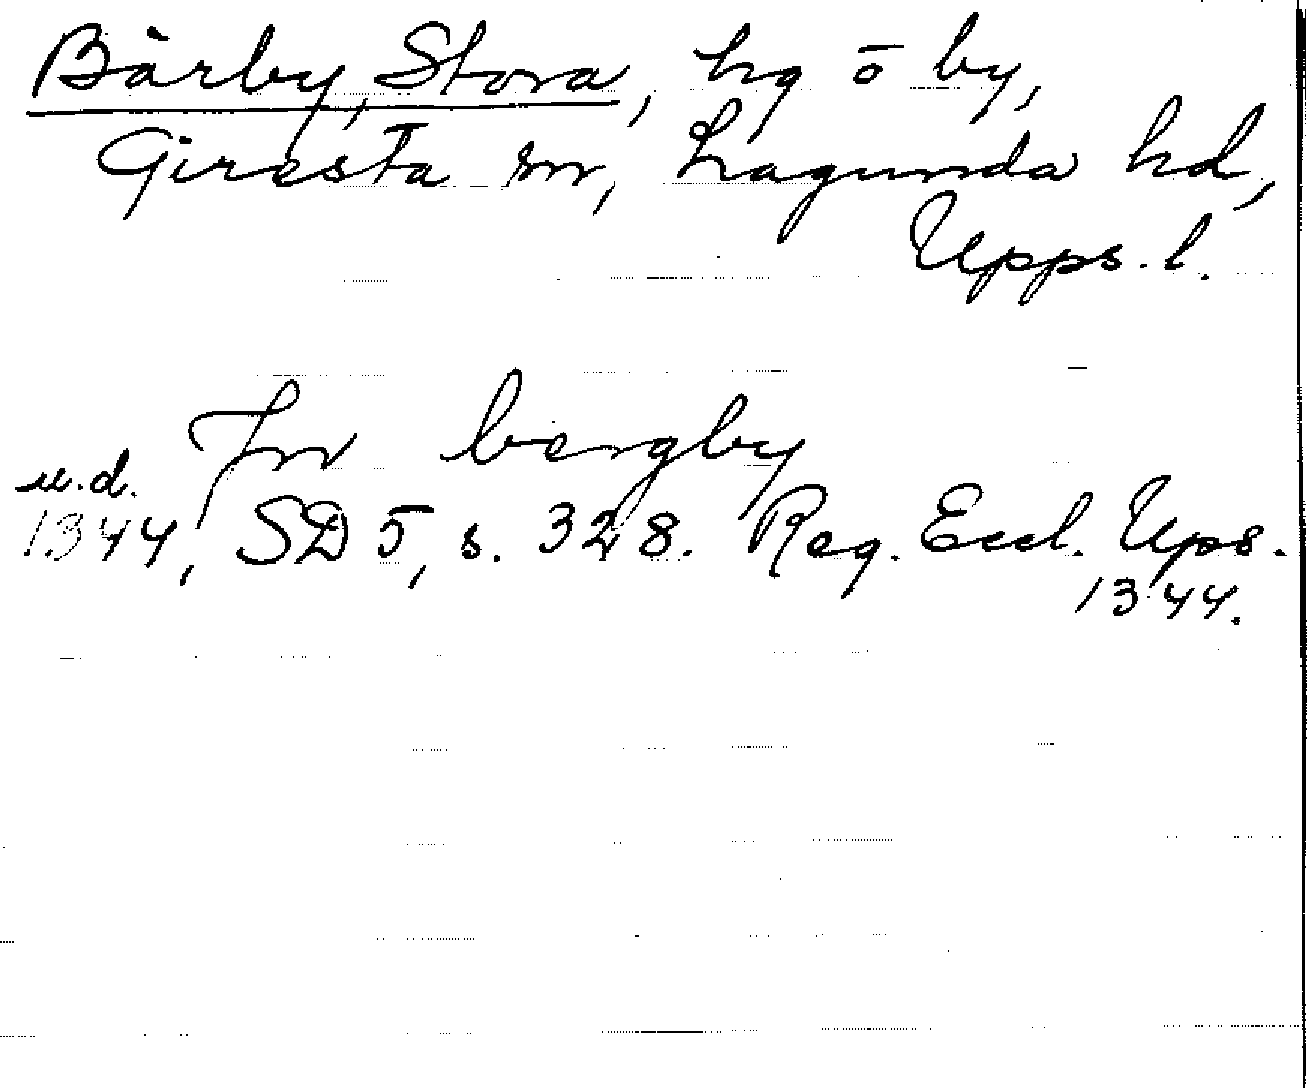 Bärby, Stora, hg o by,
Giresta sn, Lagunda hd,
Upps. l.
In bergby
u.d.
1344, SD 5, s. 328. Reg. Eccl. Ups.
1344.